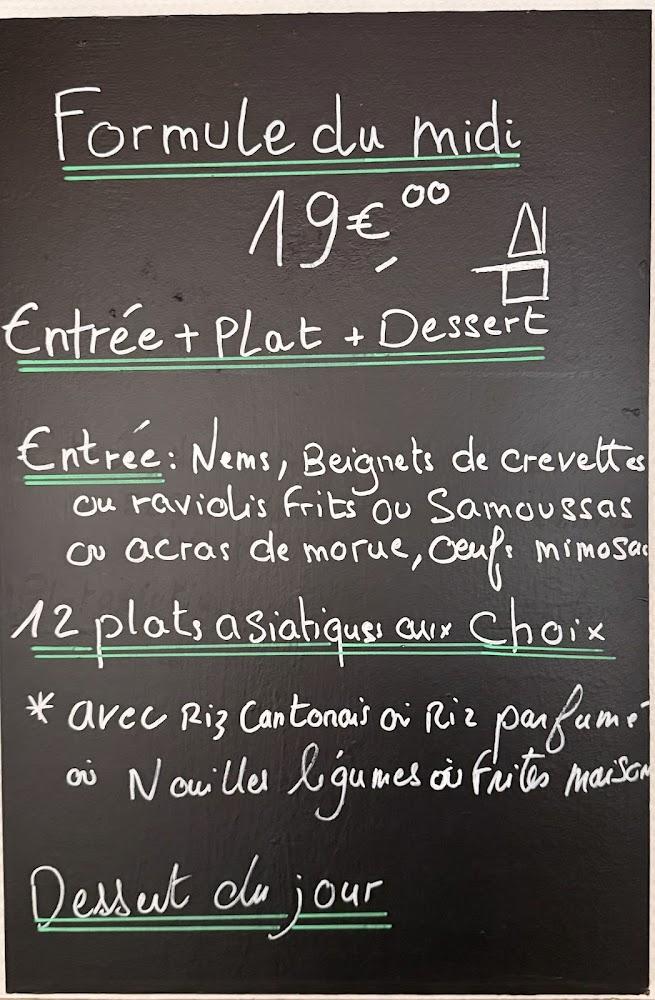 Formule du midi
19€,00
Entrée + Plat + Dessert
Entrée : Nems, Beignets de crevettes
ou raviolis frits ou Samoussas
ou acras de morue, Oeufs mimosas
12 plats asiatiques aux Choix
* avec Riz Cantonais où Riz parfumé
où Nouilles légumes où frites maison
Dessert du jour